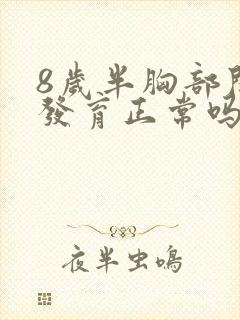 8歲半胸部開
發育正常嗎
夜半虫鳴